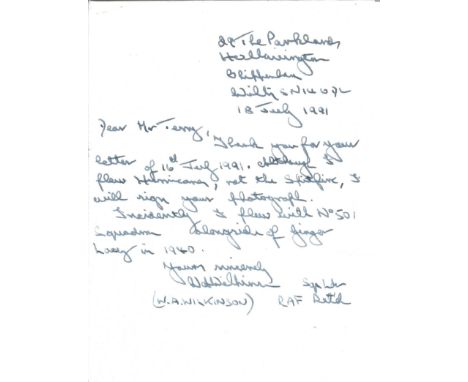 28 The Parklands
Hullavington
Chippenham
Wilts SN14 0PL
18 July 1991
Dear Mr Terry,
Thank you for your
letter of 16th July 1991. Although I
flew Hurricanes, not the Spitfire, I
will sign your photograph.
Incidently I flew with No 501
Squadron alongside of Ginger
Lacey in 1940.
Yours sincerely
W A Wilkinson Sqn Ldr
(W.A.WILKINSON) RAF Retd